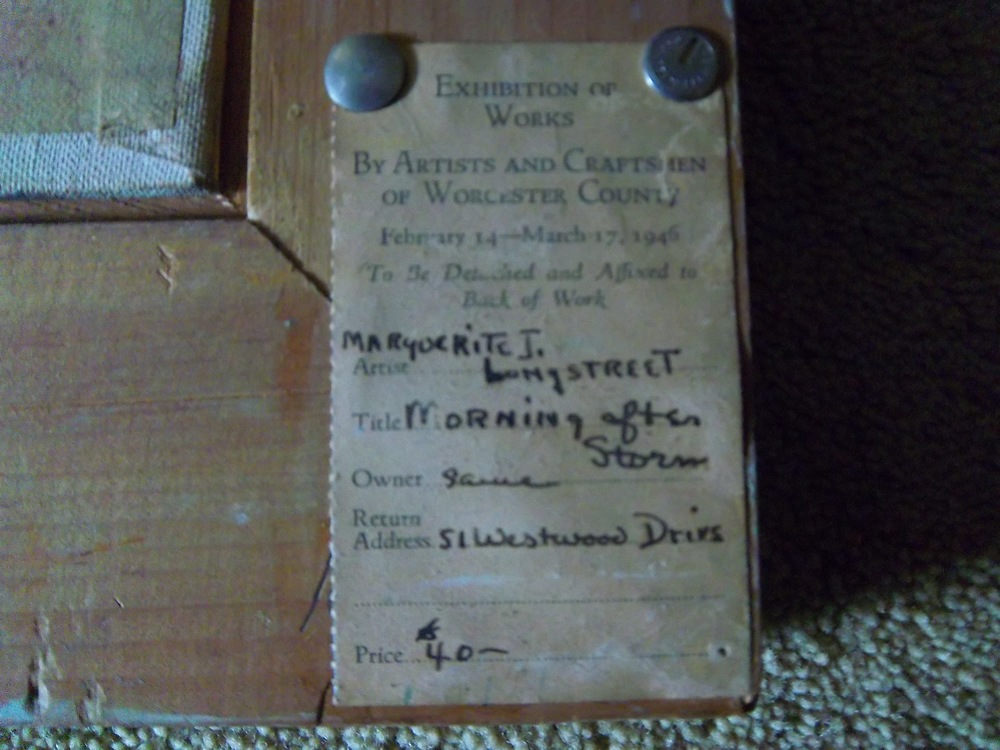 EXHIBITION OF
WORKS
BY ARTISTS AND CRAFTSMEN
OF WORCESTER COUNTY
February 14—March 17, 1946
To Be Detached and Affixed to
Back of Work
MARGUERITE I.
Artist LONGSTREET
Title MORNING after
Storm
Owner Same
Return
Address 51 Westwood Drive
Price $40—